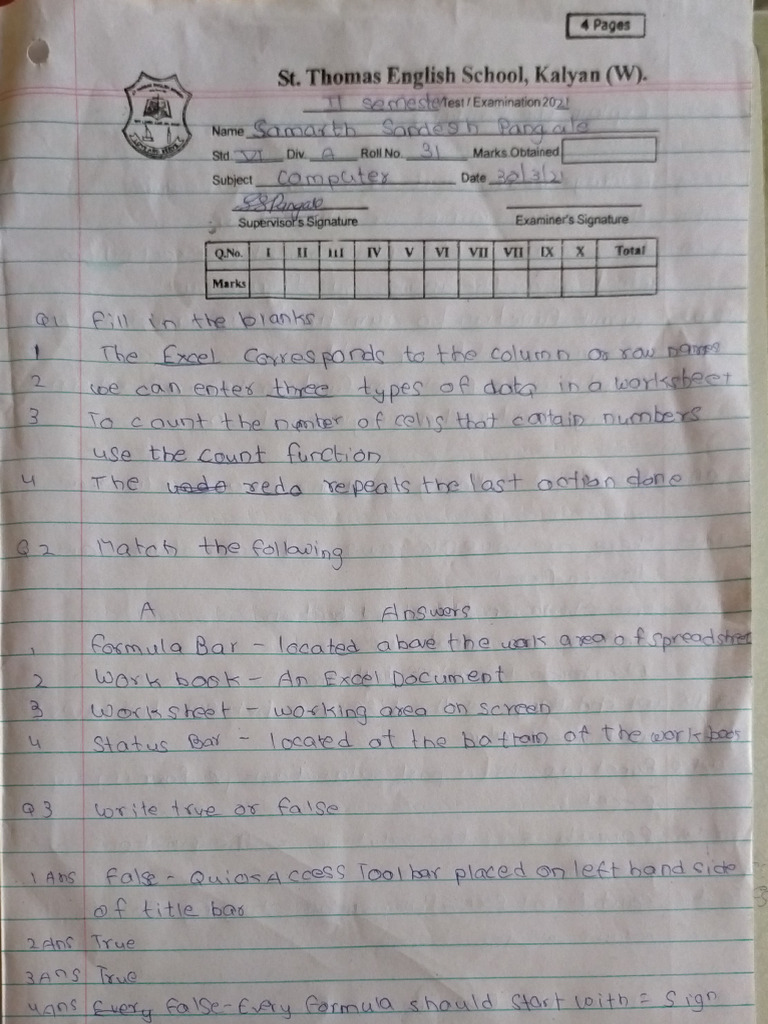 4 Pages
St. Thomas English School, Kalyan (W).
II semester Test / Examination 2021
Name Samarth Sandesh Pangale
Std VI Div. A Roll No. 31 Marks Obtained
Subject Computer Date 30/3/21
SSPangale
Supervisor's Signature Examiner's Signature
Q.No. I II III IV V VI VII VII IX X Total
Marks
Q1 Fill in the blanks
1 The Excel Corresponds to the column or row names
2 we can enter three types of data in a worksheet
3 To count the number of cells that contain numbers
use the count function
4 The redo repeats the last action done
Q2 Match the following
A Answers
1 Formula Bar - located above the work area of spreadsheet
2 Work book - An Excel Document
3 Worksheet - working area on screen
4 Status Bar - located at the bottom of the work book
Q3 Write true or false
1 Ans false - Quick Access Toolbar placed on left hand side
of title bar
2 Ans True
3 Ans True
4 ans Every false - Every formula should start with = sign